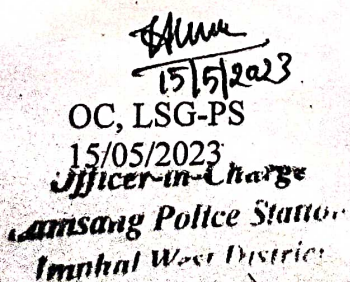 15/5/2023
OC, LSG-PS
15/05/2023
Officer-in-Charge
Lamsang Police Station
Imphal West District